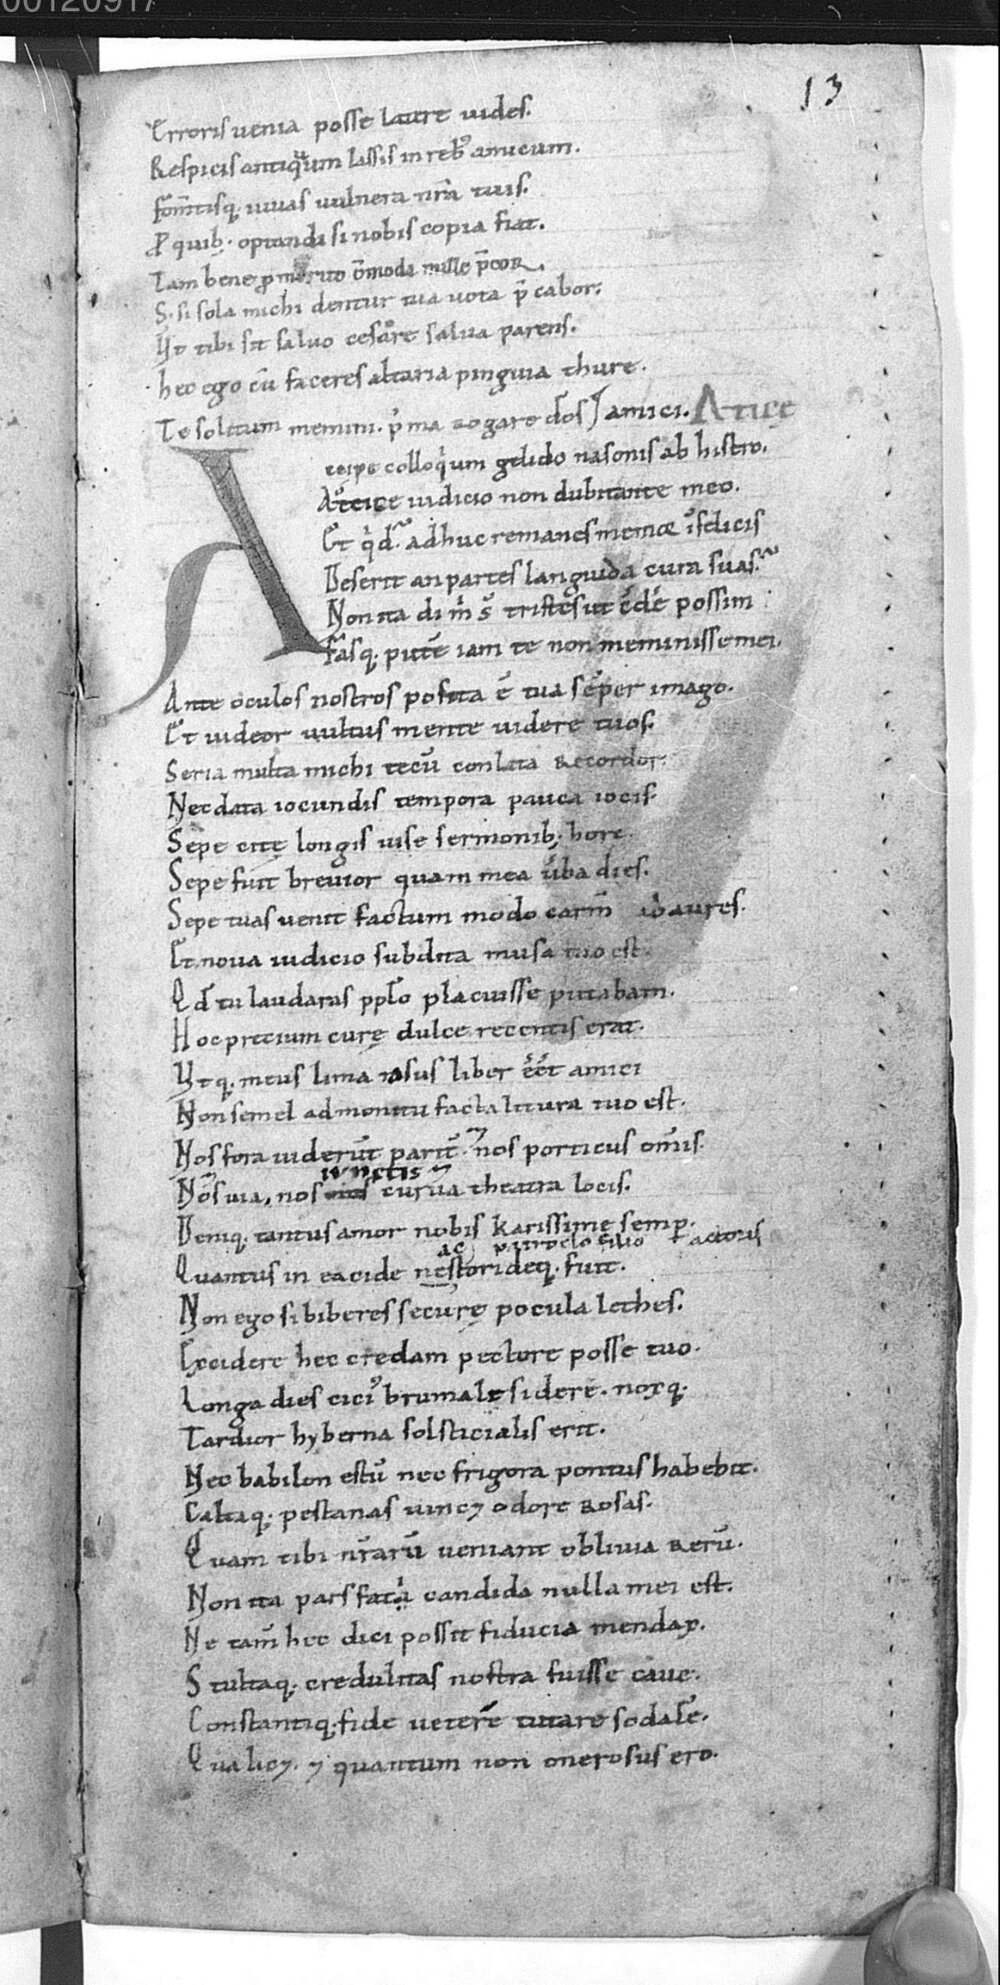 00120917
13
Erroris uenia posse latere uides.
Respicis antiquum lassis in reb; amicum.
fom̅tisq. iuuas uulnera nr̅a tuis.
P quib; optandi si nobis copia fiat.
Tam bene p merito om̅oda mille p̅cor.
S. si sola michi dentur tua uota p̅cabor:
Vt tibi sit saluo cesare salua parens.
hec ego cu̅ faceres altaria pinguia thure.
Te solitum memini. p̅ma rogare d̅os / amici. Atice
Accipe colloqium gelido nasonis ab histro.
Attice iudicio non dubitante meo.
Et qd adhuc remanes memor i̅felicis
Deserit an partes languida cura suas.
Non ita di m̅ s̅ tristes ut c̅de̅ possim
fasq. pute̅t iam te non meminisse mei.
Ante oculos nostros posita e̅ tua se̅per imago.
Et uideor uultus mente uidere tuos.
Seria multa michi tecu̅ conlata recordor.
Nec data iocundis tempora pauca iocis.
Sepe cite longis uise sermonib; hore.
Sepe fuit breuior quam mea u̅ba dies.
Sepe tuas uenit factum modo carm̅ ad aures.
Et noua iudicio subdita musa tuo est.
Qd tu laudaras pplo placuisse putabam.
Hoc precium cure dulce recentis erat.
Vtq. meus lima rasus liber e̅et amici
Non semel admonitu facta litura tuo est.
Nos fora uideru̅t parit̅. nos porticus om̅is.
iunctis
Nos uia, nos curua theatra locis.
Deniq. tantus amor nobis karissime semp.
ac patroclo filio Factoris
Quantus in eacide nestorideq. fuit.
Non ego si biberes secure pocula lethes.
Excidere hec credam pectore posse tuo.
Longa dies cici9 brumale sidere. noxq.
Tardior hyberna solsticialis erit.
Nec babilon estu̅ nec frigora pontus habebit.
Caltaq. pestanas uincet odore rosas.
Quam tibi nr̅aru̅ ueniant obliuia reru̅.
Non ita pars fati candida nulla mei est.
Ne tam̅ hec dici possit fiducia mendax.
Stultaq. credulitas nostra fuisse caue.
Constantiq. fide uetere̅ tutare sodale̅.
Qua lic7. 7 quantum non onerosus ero.